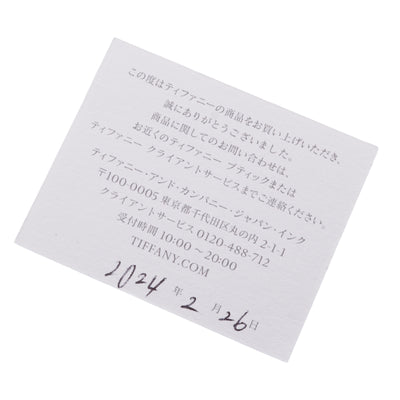 この度はティファニーの商品をお買い上げいただき、
誠にありがとうございました。
商品に関してのお問い合わせは、
お近くのティファニー ブティックまたは
ティファニー クライアントサービスまでご連絡ください。
ティファニー・アンド・カンパニー・ジャパン・インク
〒100-0005 東京都千代田区丸の内 2-1-1
クライアントサービス 0120-488-712
受付時間 10:00～20:00
TIFFANY.COM
2024 年 2 月 26 日